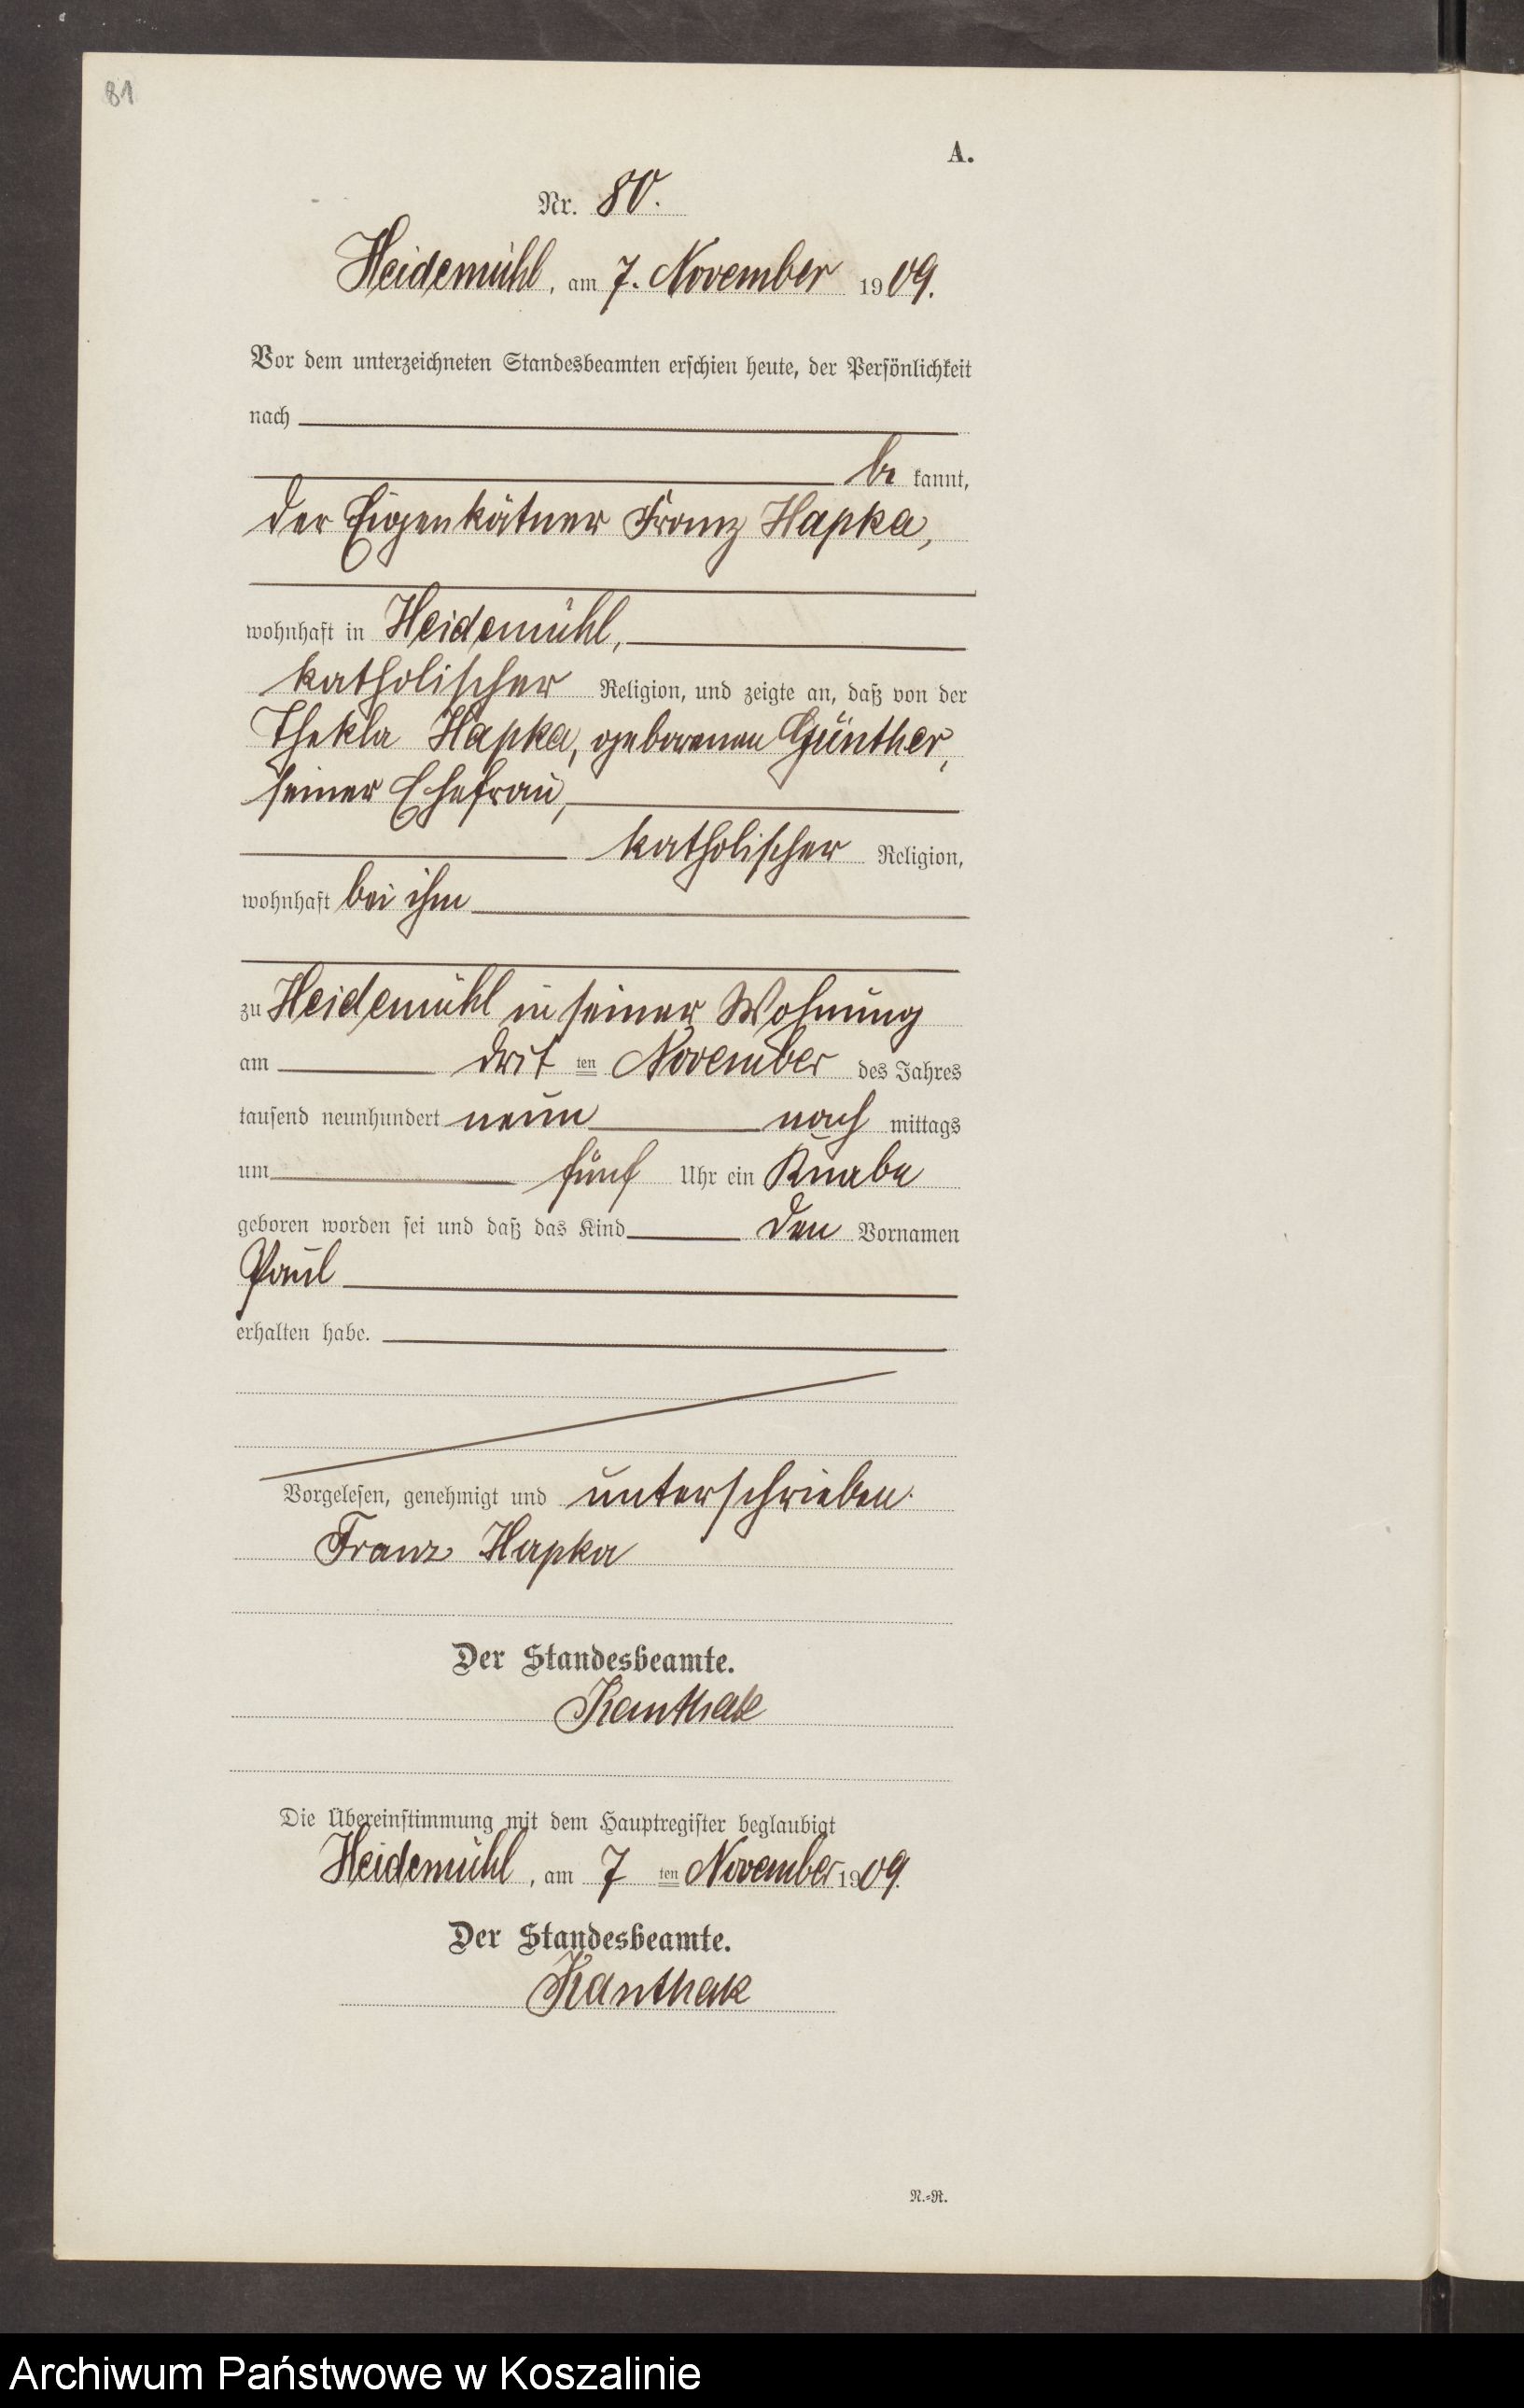 81
A.
Nr. 80.
Heidemühl, am 7. November 1909.
Vor dem unterzeichneten Standesbeamten erschien heute, der Persönlichkeit
nach
be kannt,
der Eigenkätner Franz Hapka,
wohnhaft in Heidemühl,
katholischer Religion, und zeigte an, daß von der
Thekla Hapka, geborenen Günther,
seiner Ehefrau,
katholischer Religion,
wohnhaft bei ihm
zu Heidemühl in seiner Wohnung
am drit ten November des Jahres
tausend neunhundert neun nach mittags
um fünf Uhr ein Knabe
geboren worden sei und daß das Kind den Vornamen
Paul
erhalten habe.
Vorgelesen, genehmigt und unterschrieben.
Franz Hapka
Der Standesbeamte.
Kanthak
Die Übereinstimmung mit dem Hauptregister beglaubigt
Heidemühl, am 7 ten November 1909.
Der Standesbeamte.
Kanthak
N.-R.
Archiwum Państwowe w Koszalinie